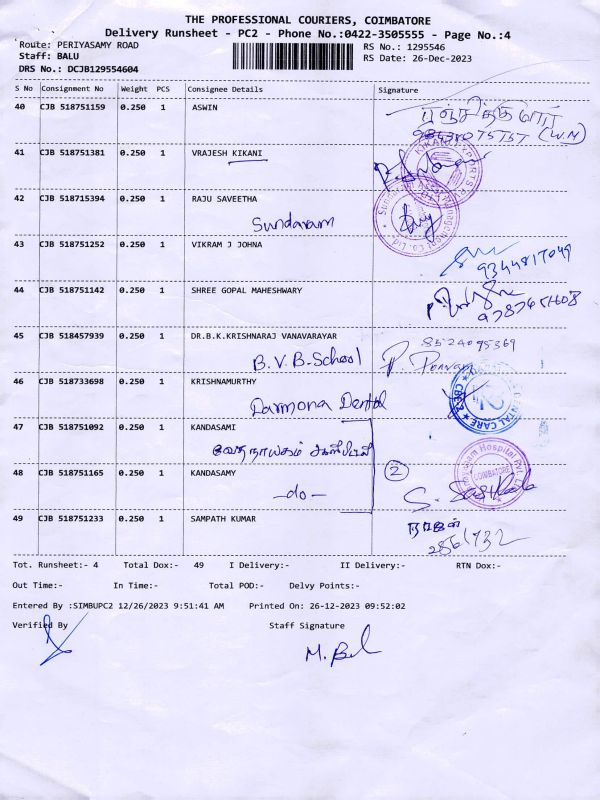 THE PROFESSIONAL COURIERS, COIMBATORE
Delivery Runsheet - PC2 - Phone No.:0422-3505555 - Page No.:4
Route: PERIYASAMY ROAD RS No.: 1295546
Staff: BALU RS Date: 26-Dec-2023
DRS No.: DCJB129554604
S No Consignment No Weight PCS Consignee Details Signature
40 CJB 518751159 0.250 1 ASWIN
41 CJB 518751381 0.250 1 VRAJESH KIKANI
42 CJB 518715394 0.250 1 RAJU SAVEETHA
Sundaram
43 CJB 518751252 0.250 1 VIKRAM J JOHNA
9344817049
44 CJB 518751142 0.250 1 SHREE GOPAL MAHESHWARY
45 CJB 518457939 0.250 1 DR.B.K.KRISHNARAJ VANAVARAYAR
8524095369
B.V.B-School
46 CJB 518733698 0.250 1 KRISHNAMURTHY
Darmona Dental
47 CJB 518751092 0.250 1 KANDASAMI
48 CJB 518751165 0.250 1 KANDASAMY
2
COIMBATORE
-do-
49 CJB 518751233 0.250 1 SAMPATH KUMAR
Tot. Runsheet:- 4 Total Dox:- 49 I Delivery:- II Delivery:- RTN Dox:-
Out Time:- In Time:- Total POD:- Delvy Points:-
Entered By :SIMBUPC2 12/26/2023 9:51:41 AM Printed On: 26-12-2023 09:52:02
Verified By Staff Signature